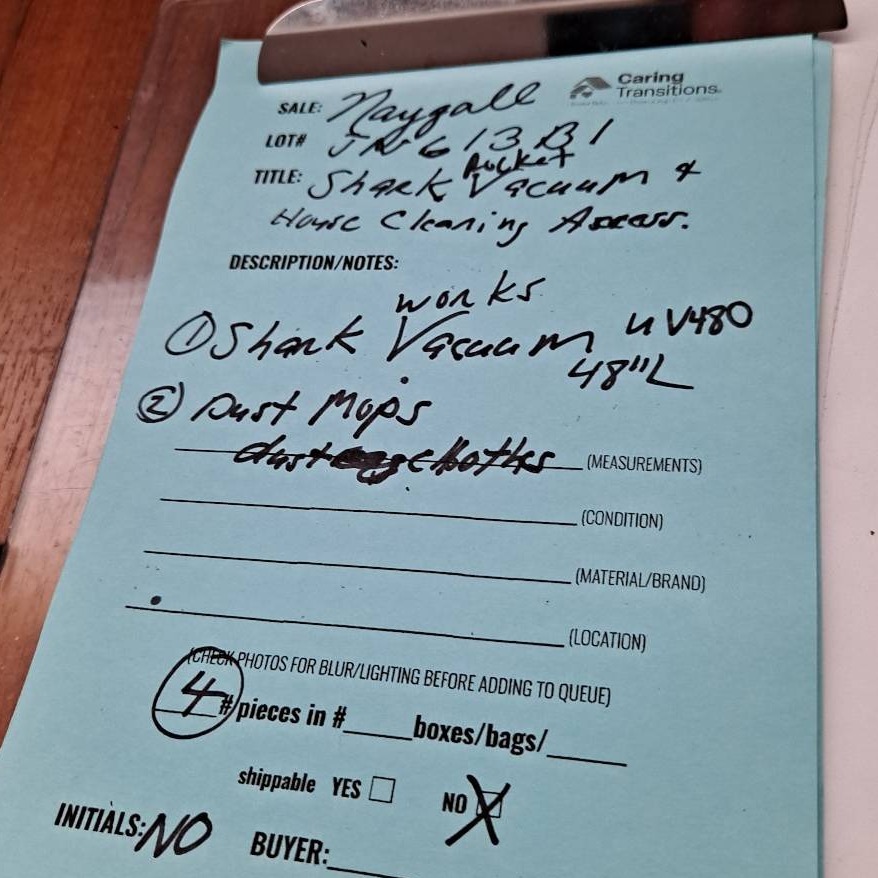 Caring
Transitions
SALE: Naygall
LOT# JN613B1
TITLE: Shark Rocket Vacuum &
House Cleaning Access.
DESCRIPTION/NOTES:
works
① Shark Vacuum UV480
48"L
② Dust Mops
dust clothes (MEASUREMENTS)
(CONDITION)
(MATERIAL/BRAND)
(LOCATION)
(CHECK PHOTOS FOR BLUR/LIGHTING BEFORE ADDING TO QUEUE)
4 # pieces in #____ boxes/bags/____
shippable YES ☐ NO ☒
INITIALS: NO BUYER:____